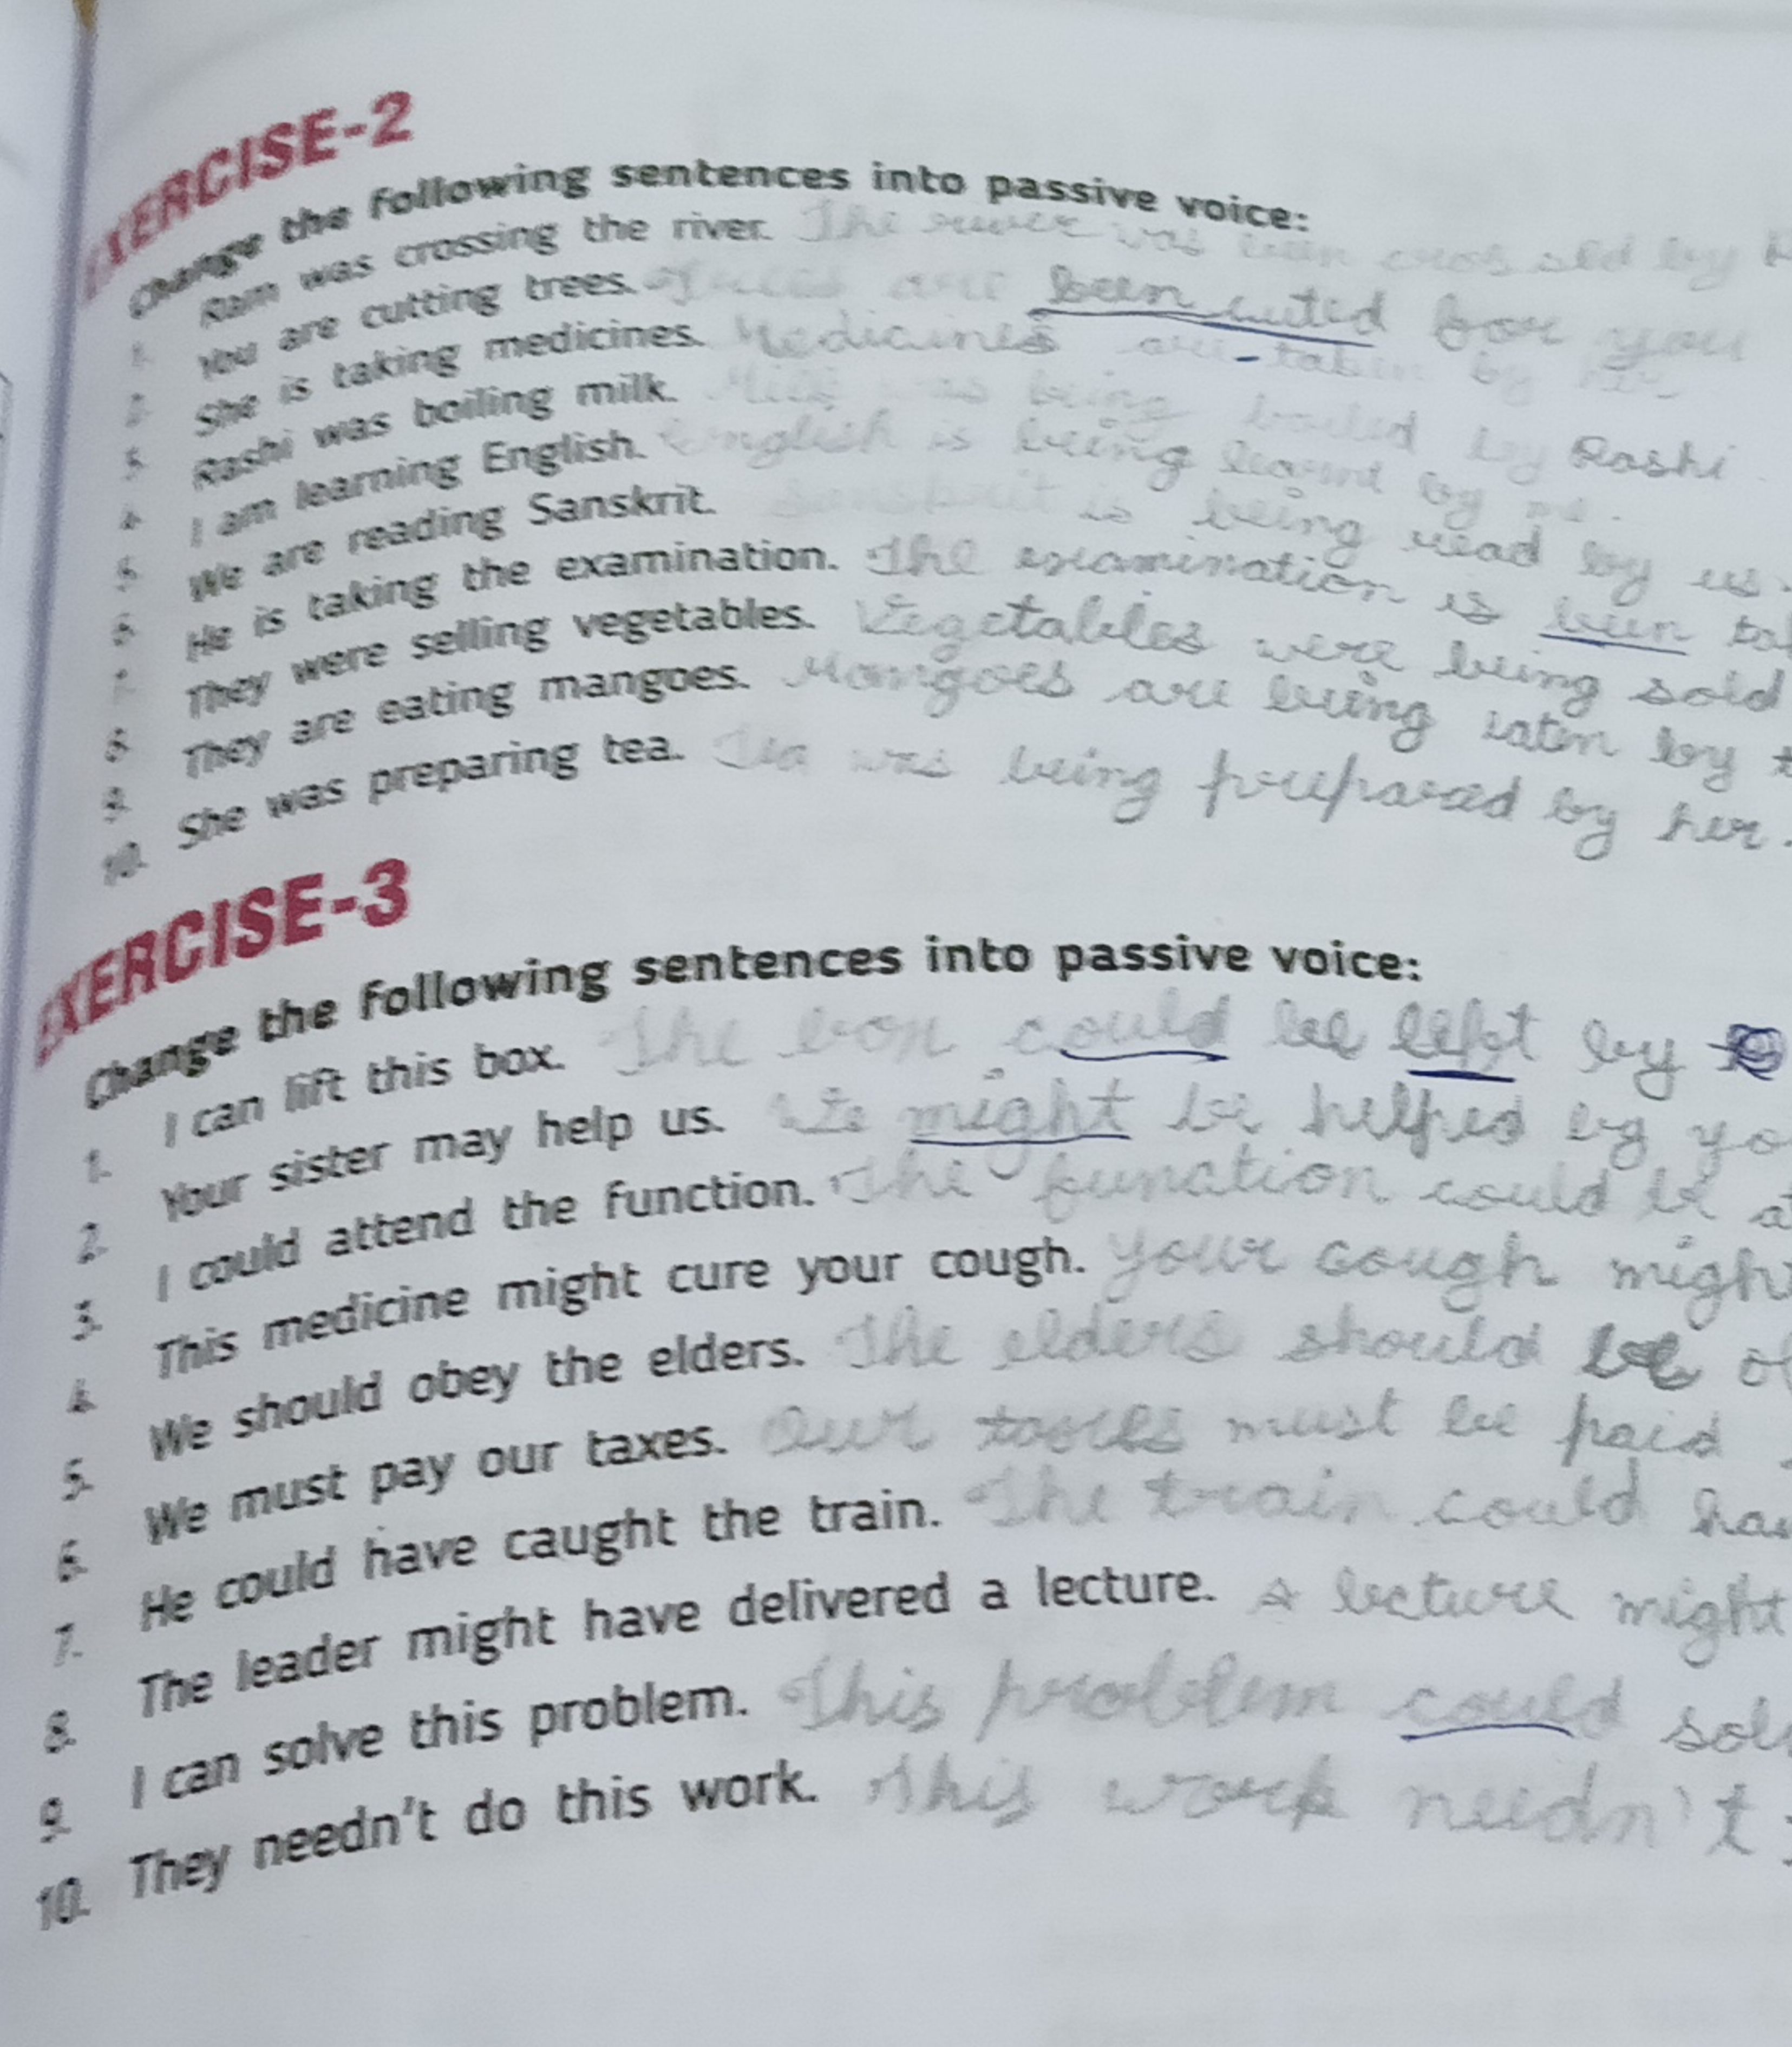 EXERCISE-2
Change the following sentences into passive voice:
1. Ram was crossing the river. The river was been crossed by
2. You are cutting trees. Trees are been cuted for you
3. She is taking medicines. Medicines are taken by her
4. Rashi was boiling milk. Milk was being boiled by Rashi.
5. I am learning English. English is being learnt by me.
6. We are reading Sanskrit. Sanskrit is being read by us.
7. He is taking the examination. The examination is been
8. They were selling vegetables. Vegetables were being sold
9. They are eating mangoes. Mangoes are being eaten by
10. She was preparing tea. Tea was being prepared by her.
EXERCISE-3
Change the following sentences into passive voice:
1. I can lift this box. The box could be left by
2. Your sister may help us. We might be helped by
3. I could attend the function. The function could be
4. This medicine might cure your cough. Your cough might
5. We should obey the elders. The elders should be
6. We must pay our taxes. Our taxes must be paid
7. He could have caught the train. The train could
8. The leader might have delivered a lecture. A lecture might
9. I can solve this problem. This problem could
10. They needn't do this work. This work needn't